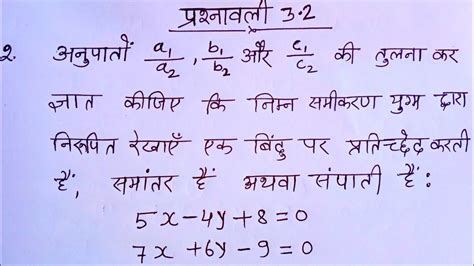 प्रश्नावली 3.2
2. अनुपातों a₁/a₂, b₁/b₂ और c₁/c₂ की तुलना कर
ज्ञात कीजिए कि निम्न समीकरण युग्म द्वारा
निरूपित रेखाएँ एक बिंदु पर प्रतिच्छेद करती
हैं, समांतर हैं अथवा संपाती हैं:
5x-4y+8=0
7x+6y-9=0